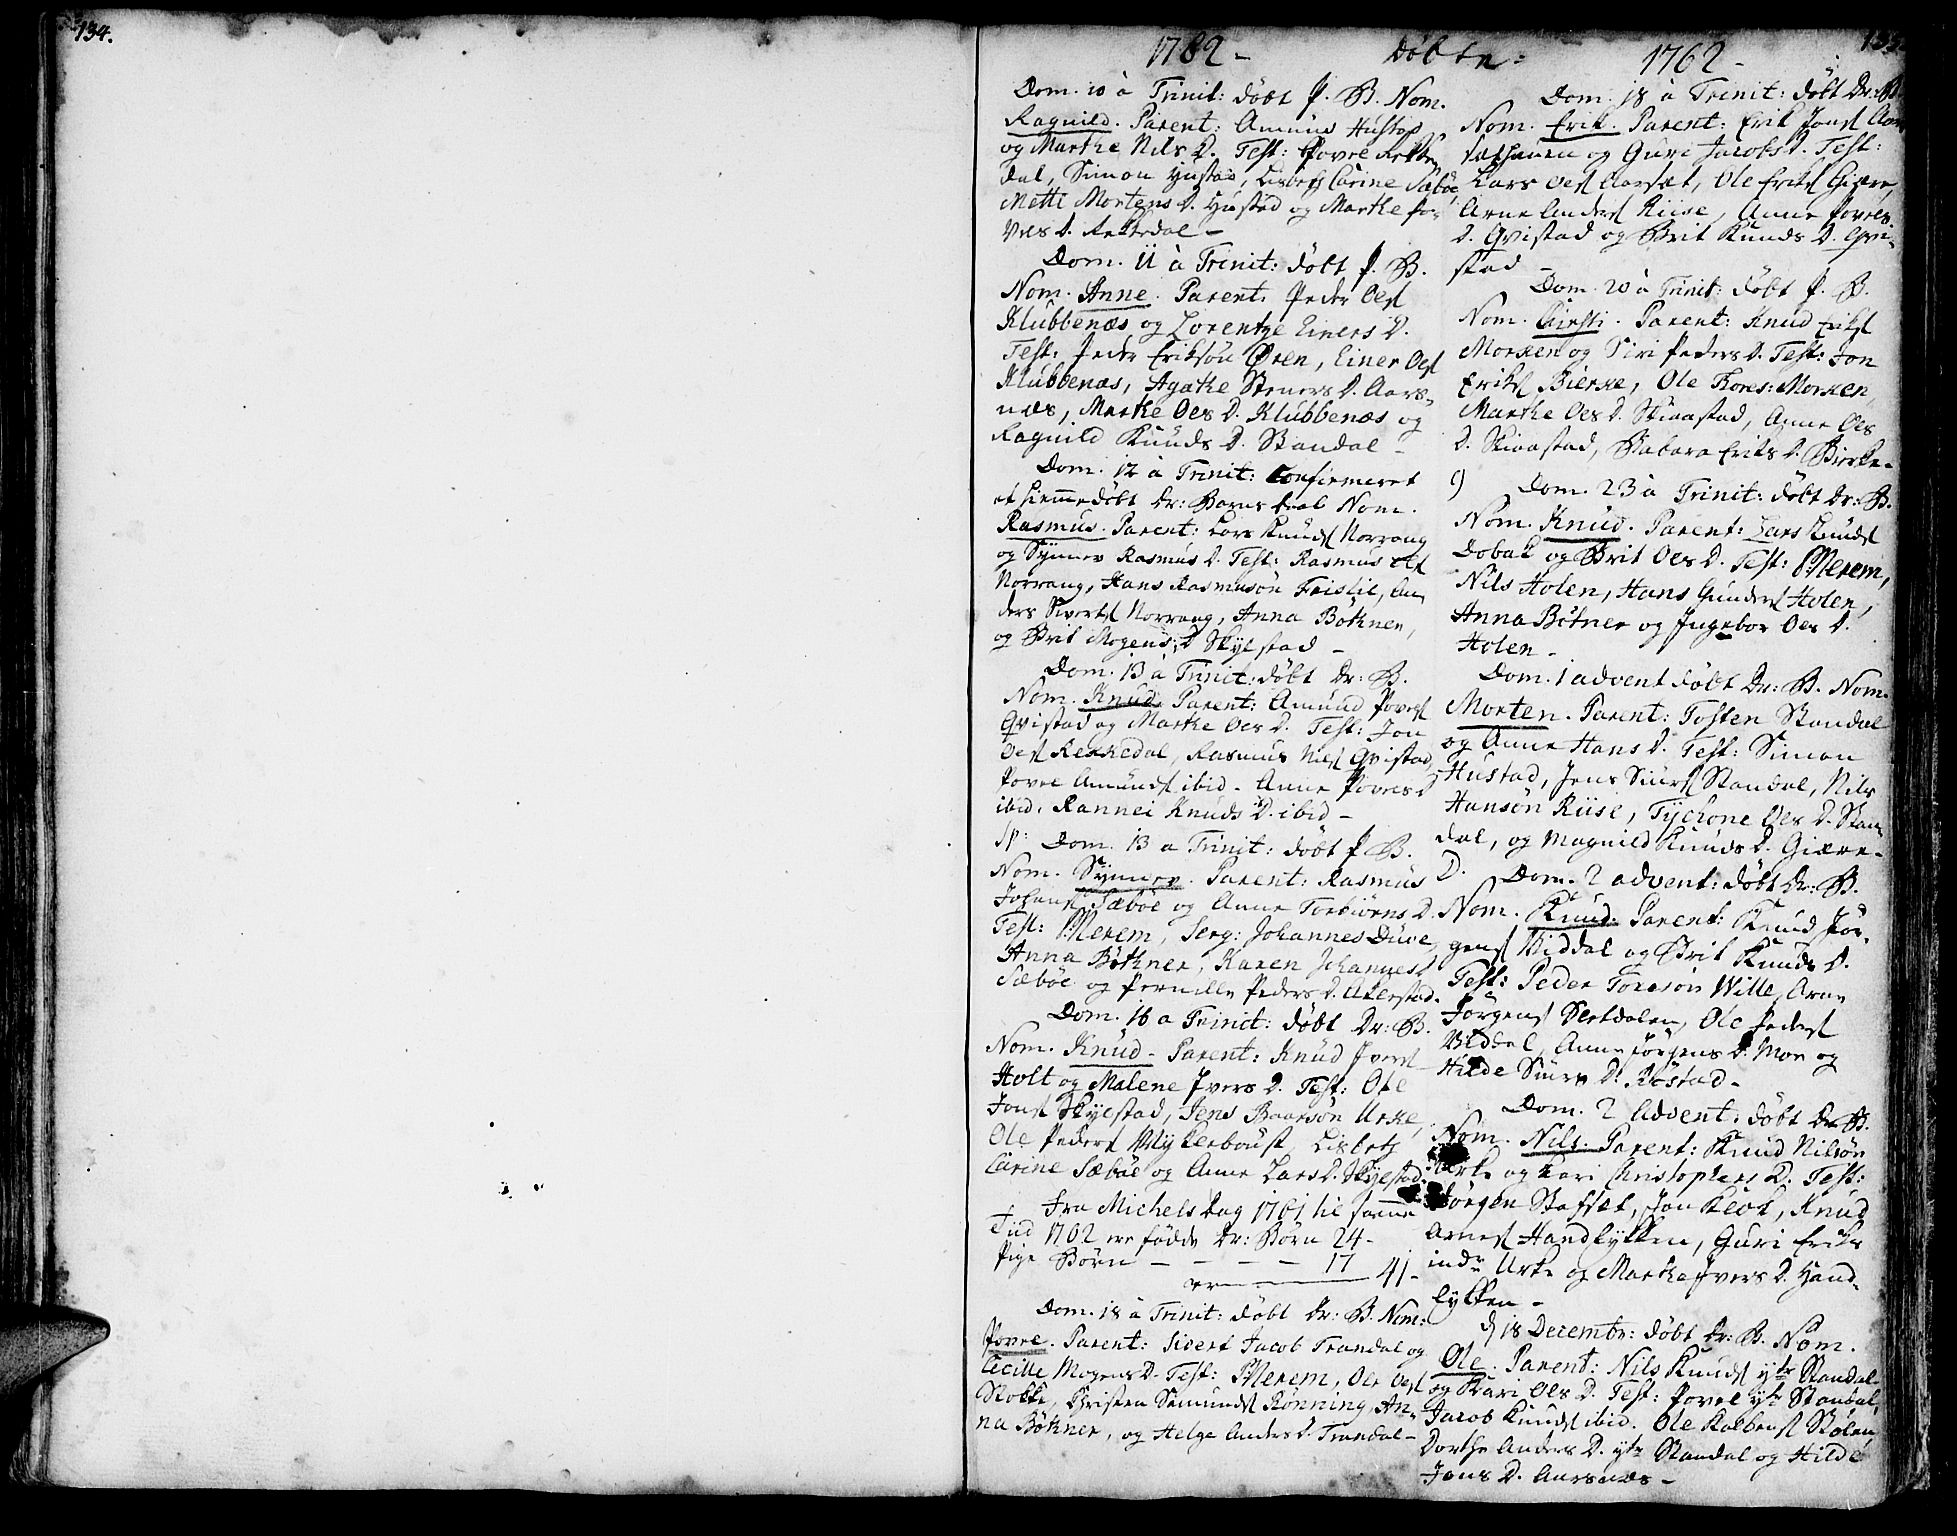 134.
135.
1762 - Döbte: 1762 -
Dom. 10 à Trinit: döbt P. B. Nom.
Ragnild. Parent: Amund Hustad
og Marthe Nils D. Test: Povel Rekke-
dal, Simon Hustad, Lisbeth Carine Sæböe,
Mette Mortens D. Hustad og Marthe Po-
vels D. Rekkedal -
Dom. 11 à Trinit: döbt P. B.
Nom. Anne. Parent: Peder Oels
Klubbenæs og Lorentze Einers D.
Test: Peder Eriksön Ören, Einer Oels
Klubbenæs, Agathe Steners D. Aars-
næs, Marthe Oles D. Klubbenæs og
Ragnild Knuds D. Standal -
Dom. 12 à Trinit: Confirmeret
et hiemmedöbt Dr: Barns daab Nom.
Rasmus. Parent: Lars Knuds Norrang
og Synnev Rasmus D. Test: Rasmus
Norrang, Hans Rasmusön Tristil, An-
ders Siverts Norrang, Anna Böthner,
og Brit Mogens D. Skylstad -
Dom. 13 à Trinit: döbt Dr: B.
Nom. Knud. Parent: Amund Povels
Qvistad og Marthe Oles D. Test: Jon
Oels Rekkedal, Rasmus Nils Qvistad,
Povel Amunds ibid. Anne Povels D
ibid. Rannei Knuds D. ibid -
Sp: Dom. 13 a Trinit: döbt P. B.
Nom. Synnev. Parent: Rasmus
Johans Sæböe og Anne Torbiörns D.
Test: P. Merem, Serg: Johannes Duve,
Anna Böthner, Karen Johannes D
Sæböe og Pernille Peders D. Akerstad.
Dom. 16 a Trinit: döbt Dr: B.
Nom. Knud - Parent: Knud Ivers
Holt og Malene Ivers D. Test: Ole
Jons Skylstad, Jens Baarsön Urke,
Ole Peders Mykleboust, Lisbeth
Carine Sæböe og Anne Lars D. Skylstad.
Fra Michels Dag 1761 til samme
Tiid 1762 ere födde Dr: Börn 24 -
Pige Börn - - - - 17
er 41 -
Dom. 18 à Trinit: döbt Dr: B. Nom:
Povel. Parent: Sivert Jacob Trandal og
Cecille Mogens D. Test: P. Merem, Ole Oels
Slokke, Christen Samunds Rönning, An-
na Böthner, og Helge Anders D. Trandal -
Dom. 18 a Trinit: döbt Dr: B.
Nom. Erik. Parent: Erik Jons Aar-
sethauen og Guri Jacobs D. Test:
Lars Oels Aarset, Ole Eriks Giære,
Arne Anders Riise, Anne Povels
D. Qvistad og Brit Knuds D. Qvi-
stad -
Dom. 20 à Trinit: döbt P. B.
Nom. Kirsti. Parent: Knud Eriks
Morken og Siri Peders D. Test: Jon
Eriks Bierke, Ole Thores: Morken,
Marthe Oles D. Skiaastad, Anne Oles
D. Skiaastad, Barbara Eriks D. Bierke -
Dom. 23 à Trinit: döbt Dr: B.
Nom. Knud. Parent: Lars Knuds
Dobak og Brit Oles D. Test: P. Merem,
Nils Holen, Hans Gunders Holen,
Anna Bötner og Ingebor Oles D.
Holen -
Dom. 1 advent döbt Dr: B. Nom.
Morten. Parent: Tosten Standal
og Anne Hans D. Test: Simon
Hustad, Jens Siurs Standal, Nils
Hansön Riise, Tychone Oles D. Stan-
dal, og Magnild Knuds D. Giære -
D. Dom. 2 advent: döbt Dr: B.
Nom. Knud. Parent: Knud Jör-
gens Viddal og Brit Knuds D.
Test: Peder Toresön Wille, Arne
Jörgens Sletdalen, Ole Peders
Viddal, Anne Jörgens D. Moe og
Hilde Siurs D. Röstad -
Dom. 2 Advent: döbt Dr B.
Nom. Nils. Parent: Knud Nilsön
Urke og Kari Christophers D. Test:
Jörgen Stafset, Jon Klok, Knud
Arnes Handlykken, Guri Eriks
indr Urke og Marthe Ivers D. Hand-
lykken -
d 18 Decembr: döbt Dr: B. Nom.
Ole. Parent: Nils Knuds ytr Standal
og Kari Oles D. Test: Povel ytr Standal,
Jacob Knuds ibid. Ole Kolbens Stölen,
Dorthe Anders D. ytr Standal og Hilde
Jons D. Aarsnæs -